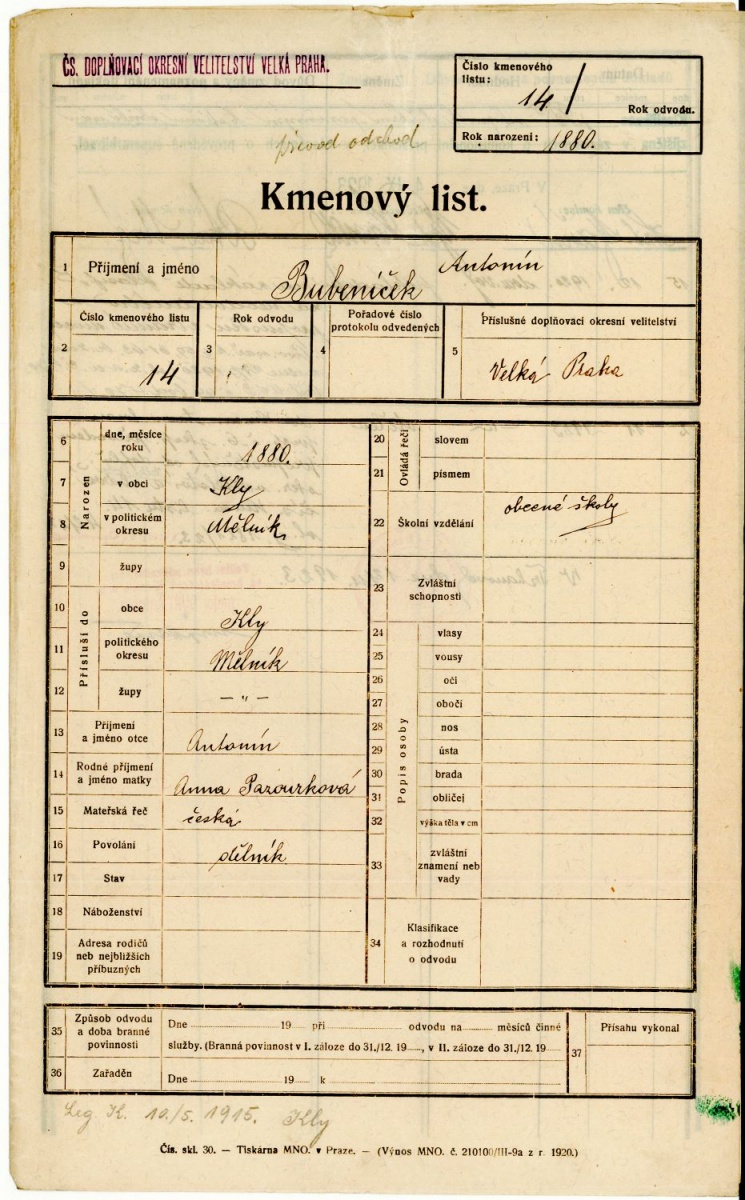 ČS. DOPLŇOVACÍ OKRESNÍ VELITELSTVÍ VELKÁ PRAHA.
Číslo kmenového
listu:
14 /
Rok odvodu.
Rok narození: 1880.
převod odchod
Kmenový list.
1 Příjmení a jméno Bubeníček Antonín
Číslo kmenového listu
2 14
Rok odvodu
3
Pořadové číslo
protokolu odvedených
4
Příslušné doplňovací okresní velitelství
5 Velká Praha
Narozen
6 dne, měsíce
roku 1880.
7 v obci Kly
8 v politickém
okresu Mělník
9 župy
Přísluší do
10 obce Kly
11 politického
okresu Mělník
12 župy — „ —
13 Příjmení
a jméno otce Antonín
14 Rodné příjmení
a jméno matky Anna Pazourková
15 Mateřská řeč česká
16 Povolání dělník
17 Stav
18 Náboženství
19 Adresa rodičů
neb nejbližších
příbuzných
Ovládá řeči
20 slovem
21 písmem
22 Školní vzdělání obecné školy
23 Zvláštní
schopnosti
Popis osoby
24 vlasy
25 vousy
26 oči
27 obočí
28 nos
29 ústa
30 brada
31 obličej
32 výška těla v cm
33 zvláštní
znamení neb
vady
34 Klasifikace
a rozhodnutí
o odvodu
35 Způsob odvodu
a doba branné
povinnosti
Dne 19 při odvodu na měsíců činné
služby. (Branná povinnost v I. záloze do 31./12. 19 , v II. záloze do 31./12. 19
36 Zařaděn
Dne 19 k
37 Přísahu vykonal
Leg. K. 10./5. 1915. Kly
Čís. skl. 30. — Tiskárna MNO. v Praze. — (Výnos MNO. č. 210100/III-9a z r. 1920.)